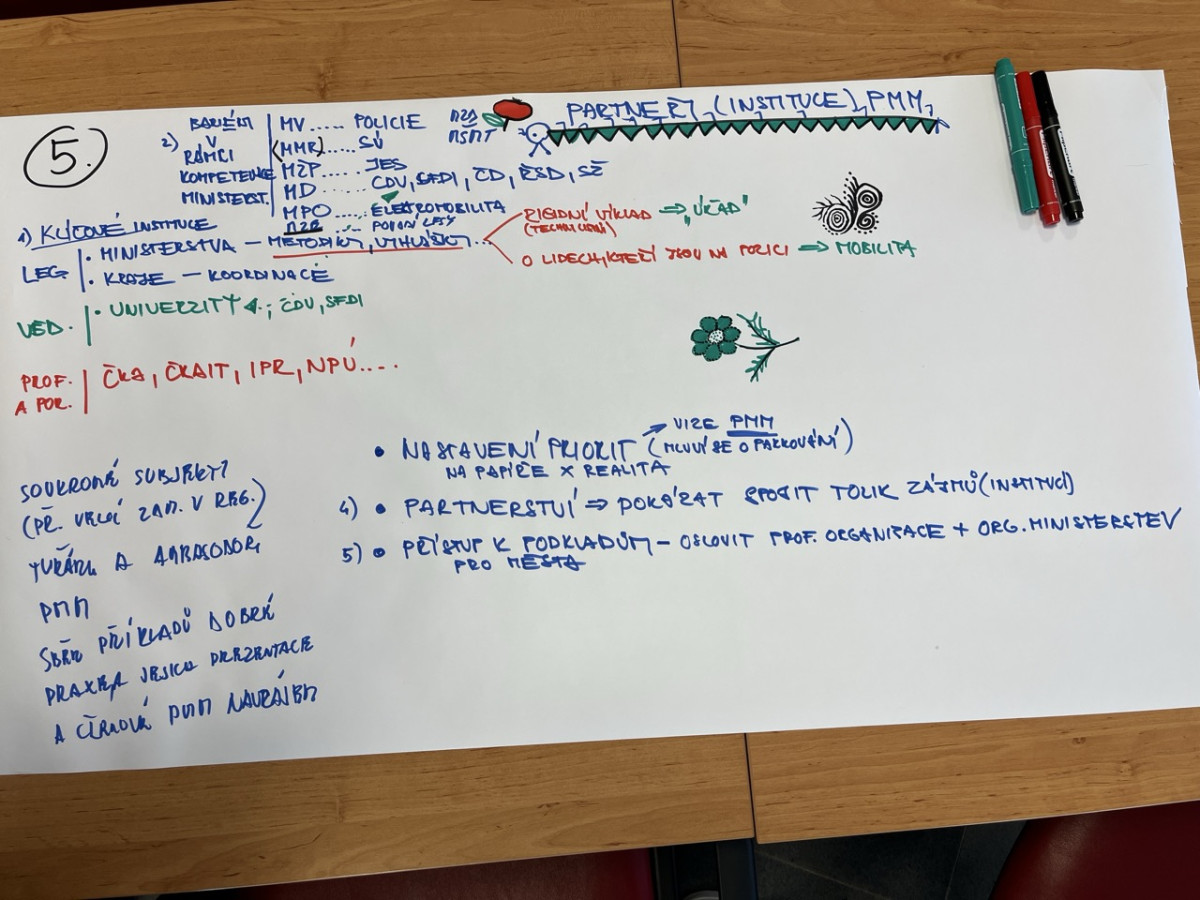 5.
PARTNEŘI (INSTITUCE) PMM
2)
V
RÁMCI
KOMPETENCE
MINISTERST.
MV ..... POLICIE
(MMR) ..... SÚ
MŽP .... JES
MD ..... CDV, SFDI, ČD, ŘSD, SŽ
MPO .... ELEKTROMOBILITA
MZD
MŠMT
1) KLÍČOVÉ INSTITUCE
LEG
• MINISTERSTVA – METODIKY, VYHLÁŠKY...
• KRAJE – KOORDINACE
RIGIDNÍ VÝKLAD ⇒ „ÚŘAD"
O LIDECH, KTEŘÍ JSOU NA POLICI ⇒ MOBILITA
VĚD.
• UNIVERZITY ; CDV, SFDI
PROF.
A POR.
ČKA, ČKAIT, IPR, NPÚ....
• NASTAVENÍ PRIORIT (MLUVÍ SE O PARKOVÁNÍ)
VIZE PMM
NA PAPÍŘE X REALITA
4) • PARTNERSTVÍ ⇒ DOKÁZAT SPOJIT TOLIK ZÁJMŮ (INSTITUCÍ)
5) • PŘÍSTUP K PODKLADŮM – OSLOVIT PROF. ORGANIZACE + ORG. MINISTERSTEV
PRO MĚSTA
SOUKROMÉ SUBJEKTY
(PŘ. VELCÍ ZAM. V REG.)
A
PMM
SBĚR PŘÍKLADŮ DOBRÉ
PRAXE, JEJICH PREZENTACE
A CÍLENÁ PMM